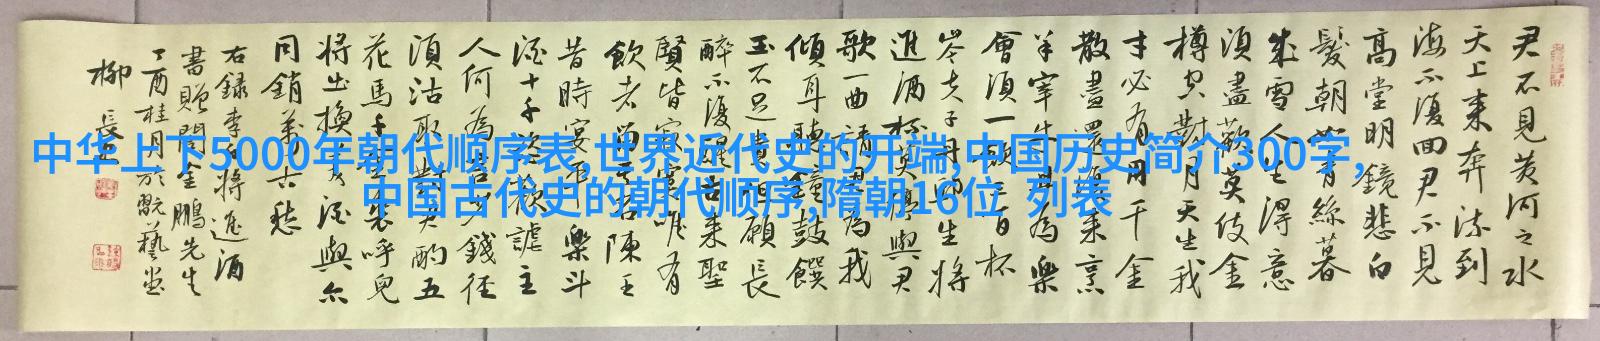 中华上下5000年朝代顺序表,世界近代史的开端,中国历史简介300字,
中国古代史的朝代顺序,隋朝16位 列表
君不見黃河之水
天上來奔流到
海不復回君不見
高堂明鏡悲白
髮朝如青絲暮
成雪人生得意
須盡歡莫使金
樽空對月天生我
才必有用千金
散盡還復來烹
羊宰牛且為樂
會須一飲三百杯
岑夫子丹丘生將
進酒杯莫停與君
歌一曲請君為我
傾耳聽鐘鼓饌
玉不足貴但願長
醉不復醒古來聖
賢皆寂寞唯有
飲者留其名陳王
昔時宴平樂斗
酒十千恣歡謔主
人何為言少錢徑
須沽取對君酌五
花馬千金裘呼兒
將出換美酒與爾
同銷萬古愁
右錄李白將進酒
書贈閆金鵬先生
丁酉桂月於翫藝堂
柳長